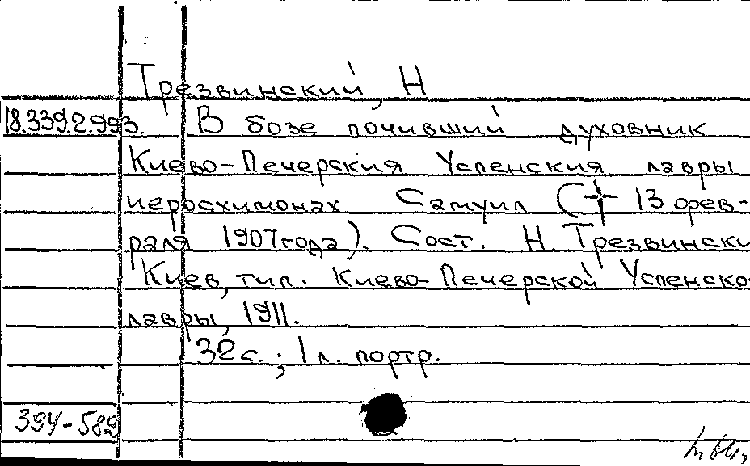 Трезвинский, Н
18.339.2.993. В бозе почивший духовник
Киево-Печерския Успенския лавры
иеросхимонах Самуил († 13 фев-
раля 1907 года). Сост. Н. Трезвински
Киев, тип. Киево-Печерской Успенско
лавры, 1911.
32 с.; 1 л. портр.
394-582